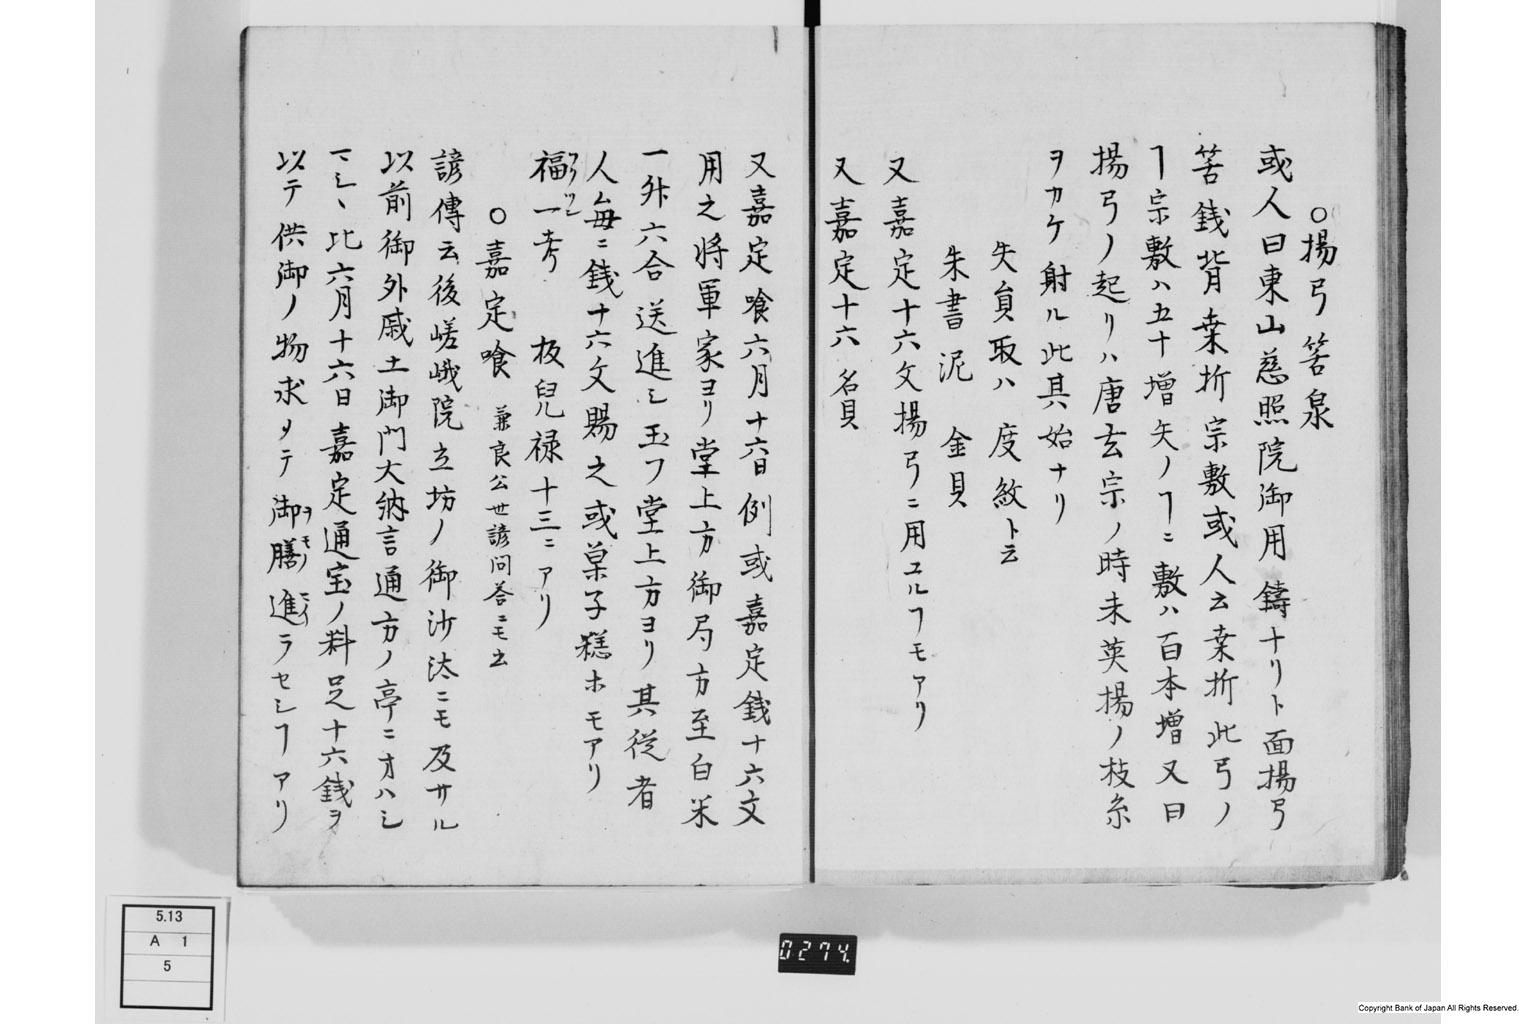 ○揚弓筈泉
或人曰東山慈照院御用鋳ナリト面揚弓
筈銭背乗折宗敷或人云乗折此弓ノ
ヿ宗敷ハ五十増矢ノヿニ敷ハ百本増又曰
揚弓ノ起リハ唐玄宗ノ時未英揚ノ枝糸
ヲカケ射ル此其始ナリ
矢員取ハ 度紋ト云
朱書 泥 金貝
又嘉定十六文揚弓ニ用ユルヿモアリ
又嘉定十六 名貝
又嘉定喰六月十六日例或嘉定銭十六文
用之将軍家ヨリ堂上方御局方至白米
一升六合送進シ玉フ堂上方ヨリ其従者
人毎ニ銭十六文賜之或菓子糕ホモアリ
福一考 板兒禄十三ニアリ
○嘉定喰 兼良公世諺問答ニモ出
諺傳云後嵯峨院立坊ノ御沙汰ニモ及サル
以前御外戚土御門大納言通方ノ亭ニオハシ
マシヽ比六月十六日嘉定通宝ノ料足十六銭ヲ
以テ供御ノ物求メテ御膳進ラセシヿアリ
5.13
A 1
5
0274.
Copyright Bank of Japan All Rights Reserved.